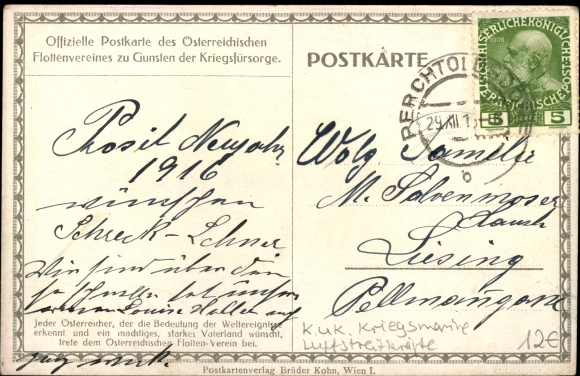 Offizielle Postkarte des Österreichischen
Flottenvereines zu Gunsten der Kriegsfürsorge.
POSTKARTE
KAISERLICHE KÖNIGLICHE ÖSTERREICHISCHE POST
1908
5 5
PERCHTOL
29.XII.1
b
Prosit Neujahr
1916
wünschen
Schreck-Lehner
Wir sind über den
Louise Haller auf
ganz
Jeder Österreicher, der die Bedeutung der Weltereignisse
erkennt und ein mächtiges, starkes Vaterland wünscht,
trete dem Österreichischen Flotten-Verein bei.
Wolg Familie
M. Salvenmoser
Liesing
Pellmanngasse
K.u.K. Kriegsmarine
Luftstreitkräfte
12€
Postkartenverlag Brüder Kohn, Wien I.